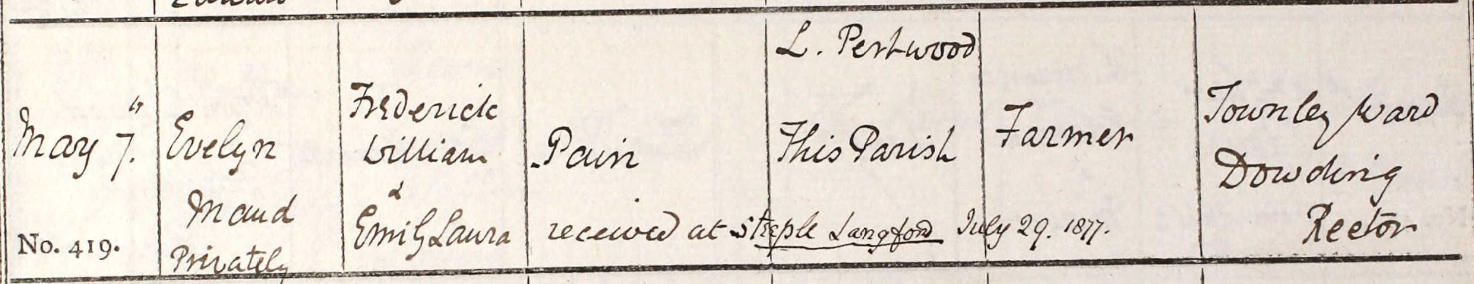 L. Pertwood
May 7.th
Evelyn
Maud
Privately
Frederick
William
&
Emily Laura
Pain
This Parish
Farmer
Townley Ward
Dowding
Rector
No. 419.
received at Steeple Langford July 29. 1877.